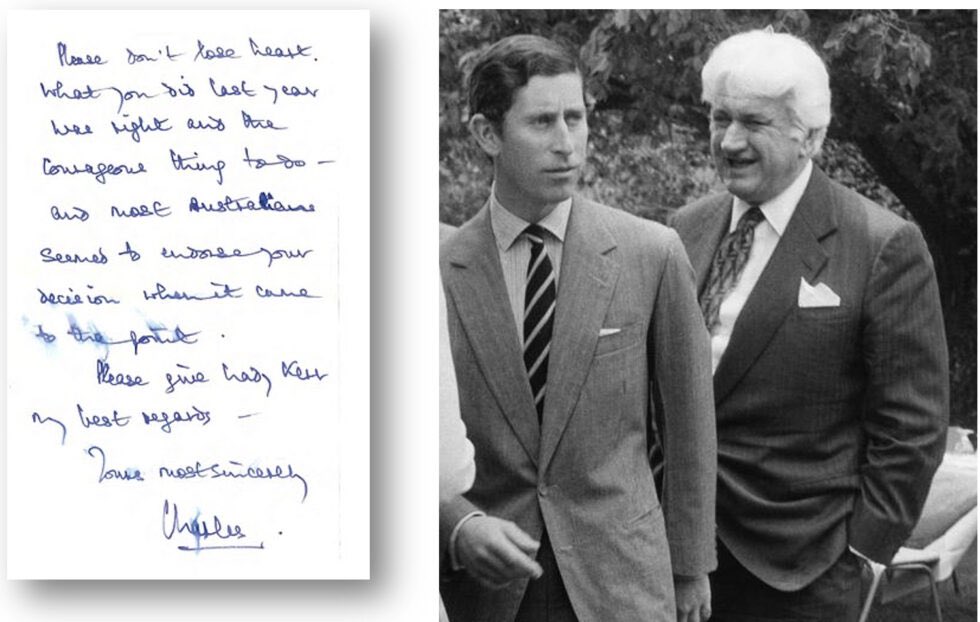 Please don't lose heart.
What you did last year
was right and the
courageous thing to do –
and most Australians
seemed to endorse your
decision when it came
to the point.
Please give Lady Kerr
my best regards –
Yours most sincerely
Charles.